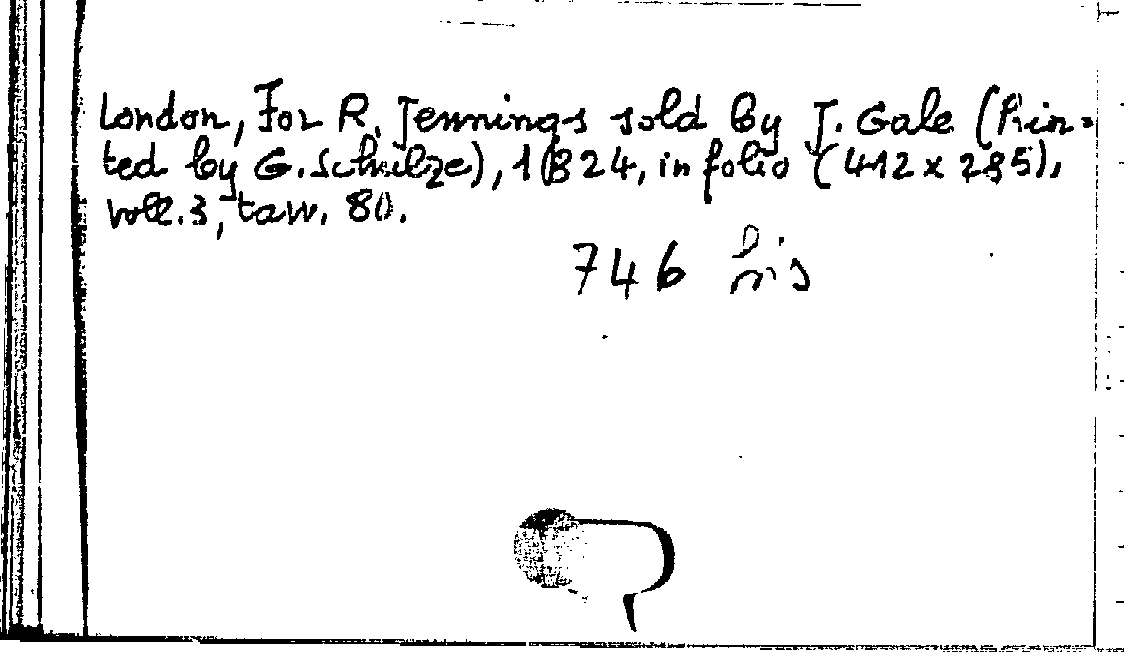 London, For R. Jennings sold by J. Gale (Prin=
ted by G. Schulze), 1824, in folio (412 x 285),
voll. 3, tavv. 80.
746 bis